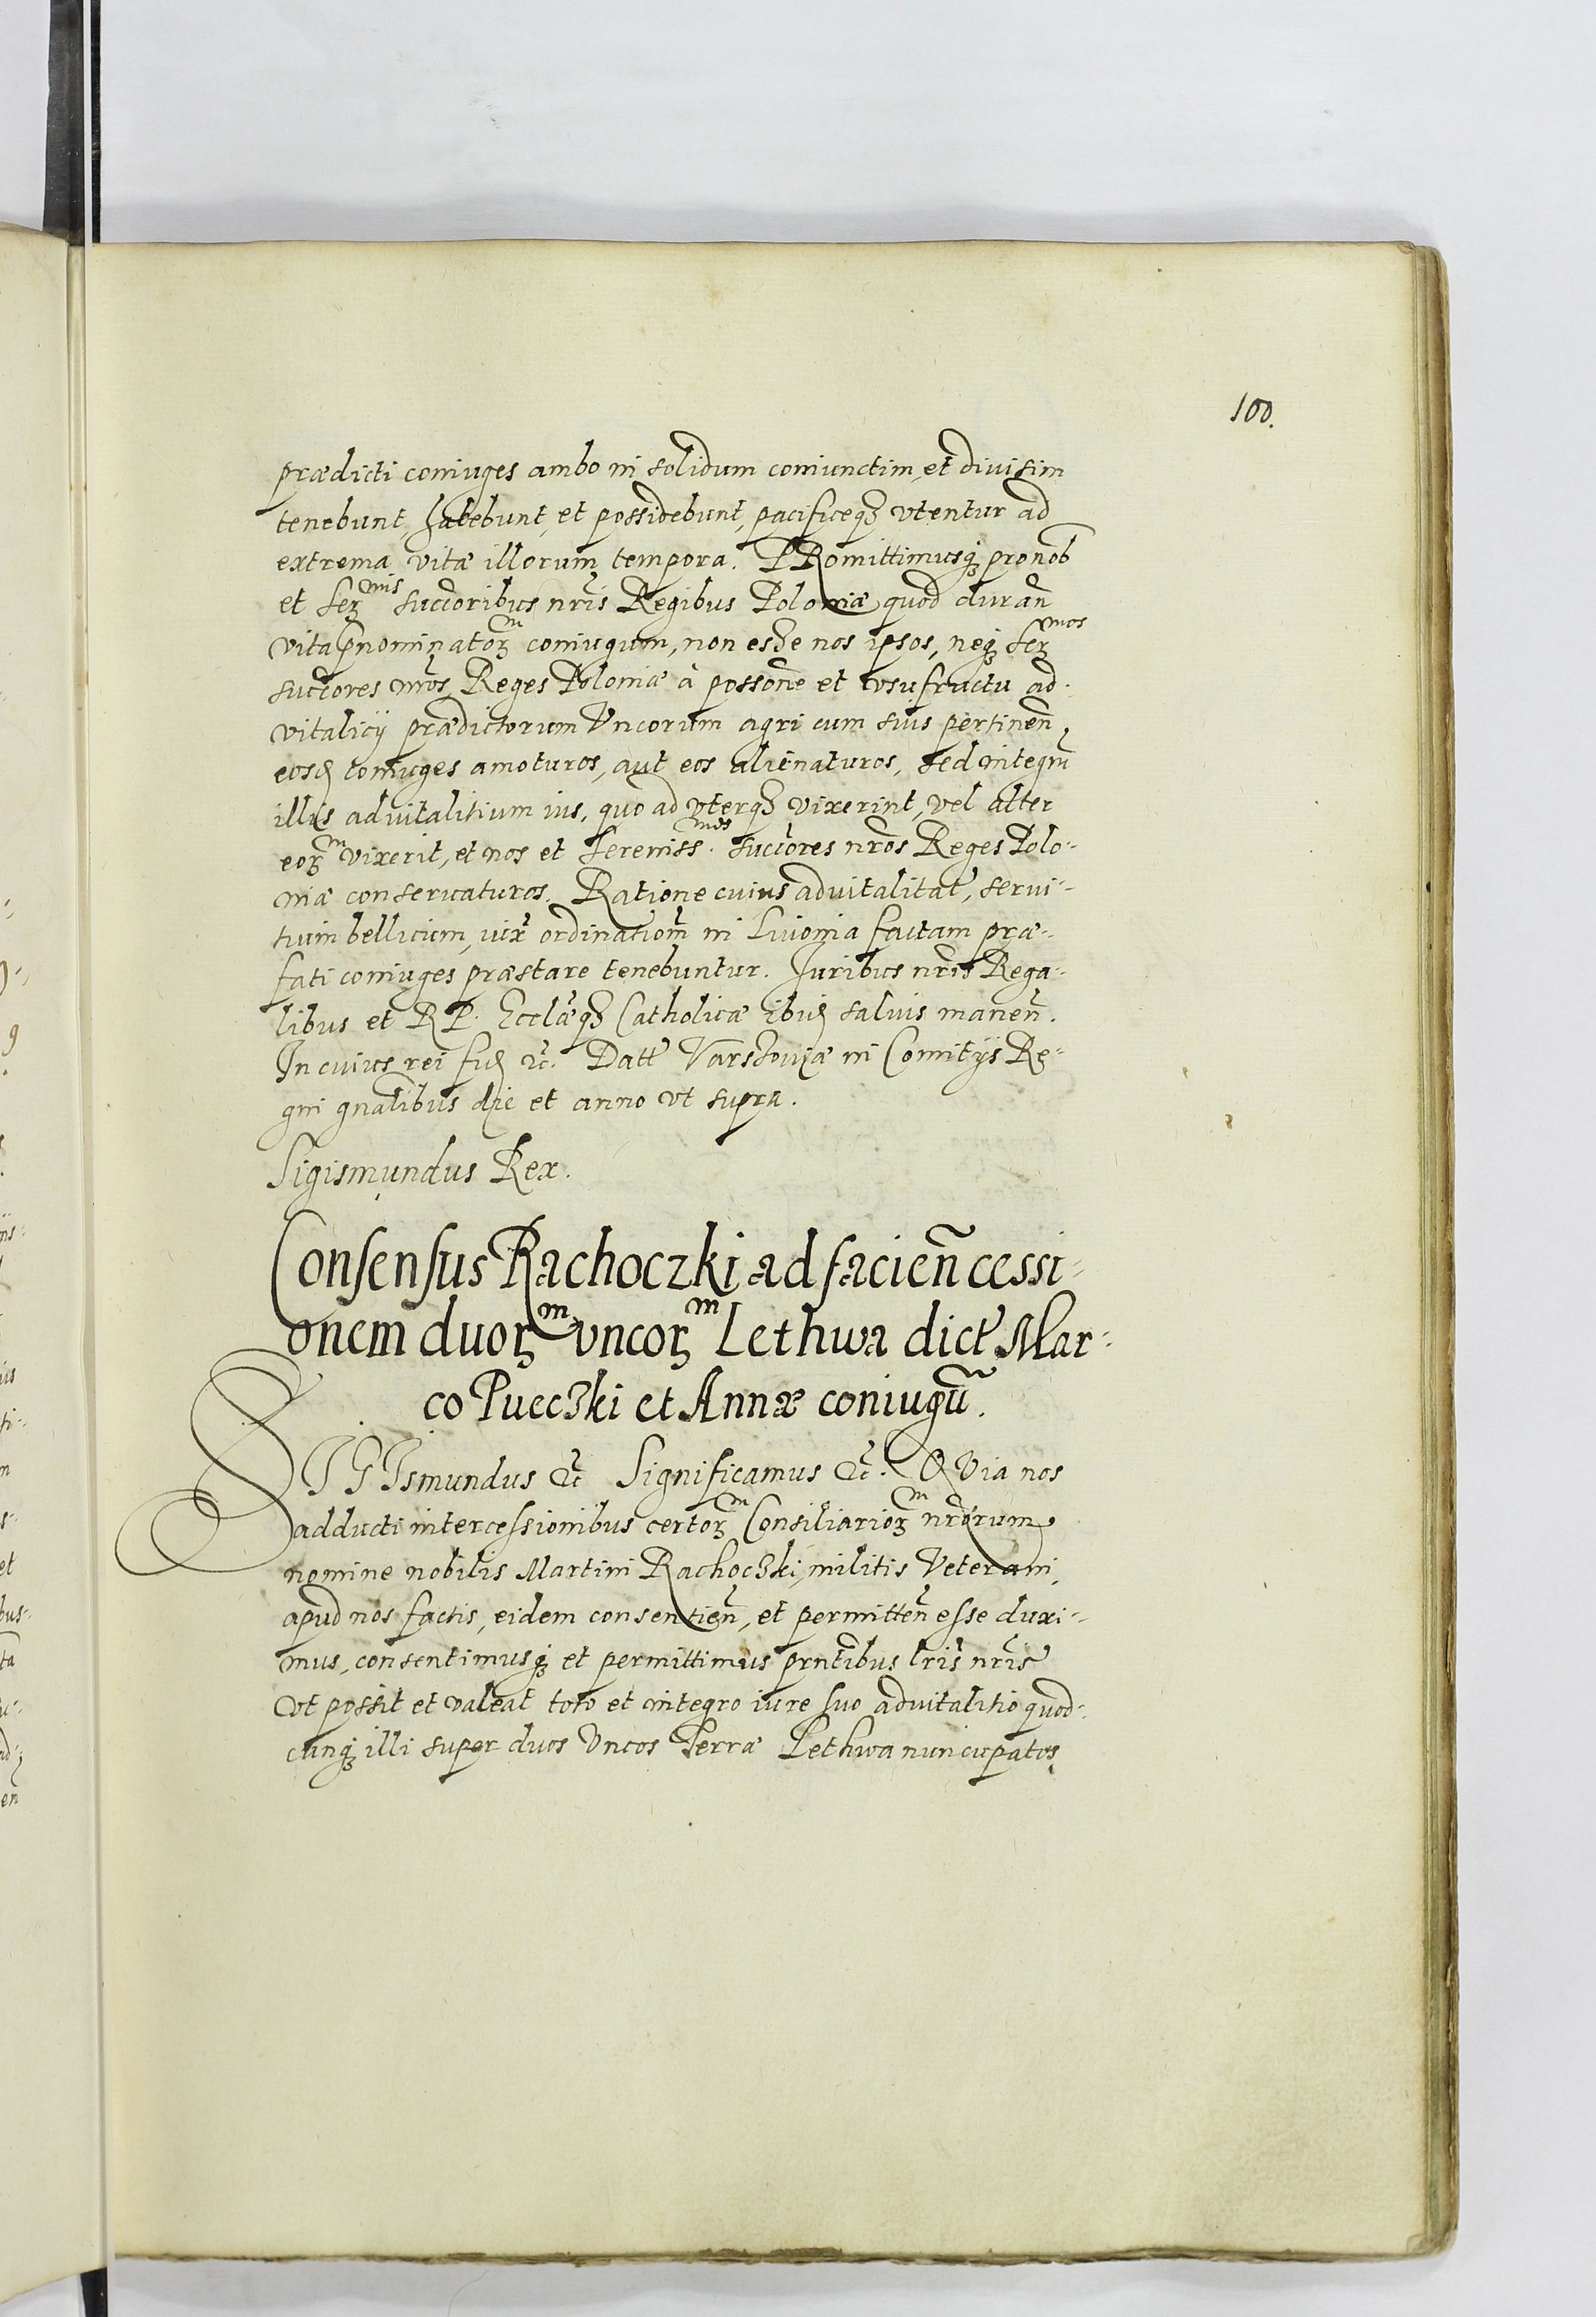 100.
prædicti coniuges ambo in solidum coniunctim, et divisim
tenebunt, habebunt, et possidebunt, pacificeqꝫ vtentur ad
extrema vitæ illorum tempora. PRomittimusqꝫ pro nob̄
et Serᵐⁱˢ succōribus nr̄is Regibus Poloniæ quod durañ
vita p̄nominatorᵐ coniugum, non esse nos ipsos, neqꝫ Serᵐᵒˢ
succōres nr̄os Reges Poloniæ à possōne et vsufructu ad-
vitalicij prædictorum Vncorum agri cum suis pertineñ
eosd coniuges amoturos, aut eos alienaturos, sed integrū
illis advitalitium ius, quo ad vterqꝫ vixerint, vel alter
eorᵐ vixerit, et nos et Sereniss.ᵐᵒˢ succōres nr̄os Reges Polo-
niæ conservaturos. Ratione cuius advitalitat, servi-
tium bellicum, iux̄ ordinatiōm in Livonia factam præ-
fati coniuges præstare tenebuntur. Iuribus nr̄is Rega-
libus et RP. Ecclæqꝫ Catholicæ ibid salvis maneñ.
In cuius rei fid ꝛc. Datt Varschoviæ in Comitijs Re-
gni gn̄alibus die et anno vt supra.
Sigismundus Rex.
Consensus Rachoczki ad facieñ cessi-
onem duorᵐ vncorᵐ Lethwa dict Mar-
co Pueczki et Annæ coniugū.
SIGIsmundus ꝛc Significamus ꝛc. QVia nos
adducti intercessionibus certorᵐ Consiliariorᵐ nr̄orum
nomine nobilis Martini Rachoczki, militis Veterani,
apud nos factis, eidem consentieñ, et permitteñ esse duxi-
mus, consentimusqꝫ et permittimus pn̄tibus lr̄is nr̄is
vt possit et valeat toto et integro iure suo advitalitio quod-
cunqꝫ illi super duos Vncos Terræ Lethwa nuncupatos